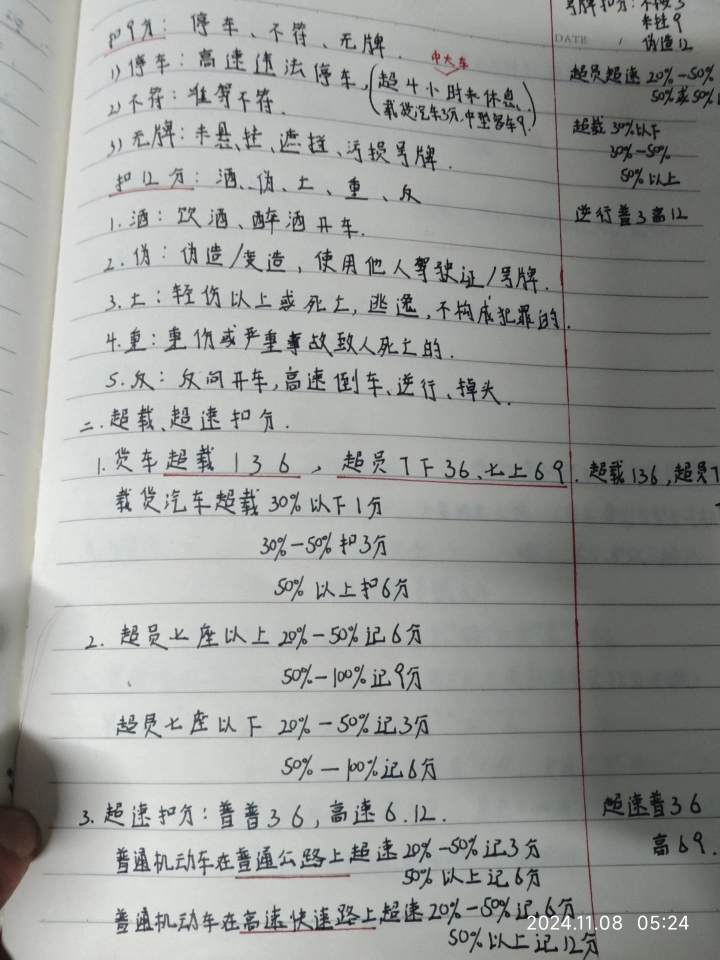 扣9分：停车、不符、无牌
1) 停车：高速违法停车，(超4小时未休息、
中大车
载货汽车3分，中型客车9.)
2) 不符：准驾不符.
3) 无牌：未悬挂、遮挡、污损号牌.
扣12分：酒、伪、亡、重、反
1.酒：饮酒、醉酒开车.
2.伪：伪造/变造，使用他人驾驶证/号牌.
3.亡：轻伤以上或死亡，逃逸，不构成犯罪的.
4.重：重伤或严重事故致人死亡的.
5.反：反向开车，高速倒车、逆行、掉头.
二.超载、超速扣分.
1.货车超载136，超员7下36、七上69.
载货汽车超载30%以下1分
30%-50%扣3分
50%以上扣6分
2.超员七座以上20%-50%记6分
50%-100%记9分
超员七座以下 20%-50%记3分
50%-100%记6分
3.超速扣分：普普36，高速6.12.
普通机动车在普通公路上超速20%-50%记3分
50%以上记6分
普通机动车在高速快速路上超速20%-50%记6分
50%以上记12分
号牌扣分：不按3
未挂9
DATE
伪造12
超员超速20%-50%
50%或50%以
超载30%以下
30%-50%
50%以上
逆行普3高12
超载136，超员7
超速普36
高69.
2024.11.08 05:24